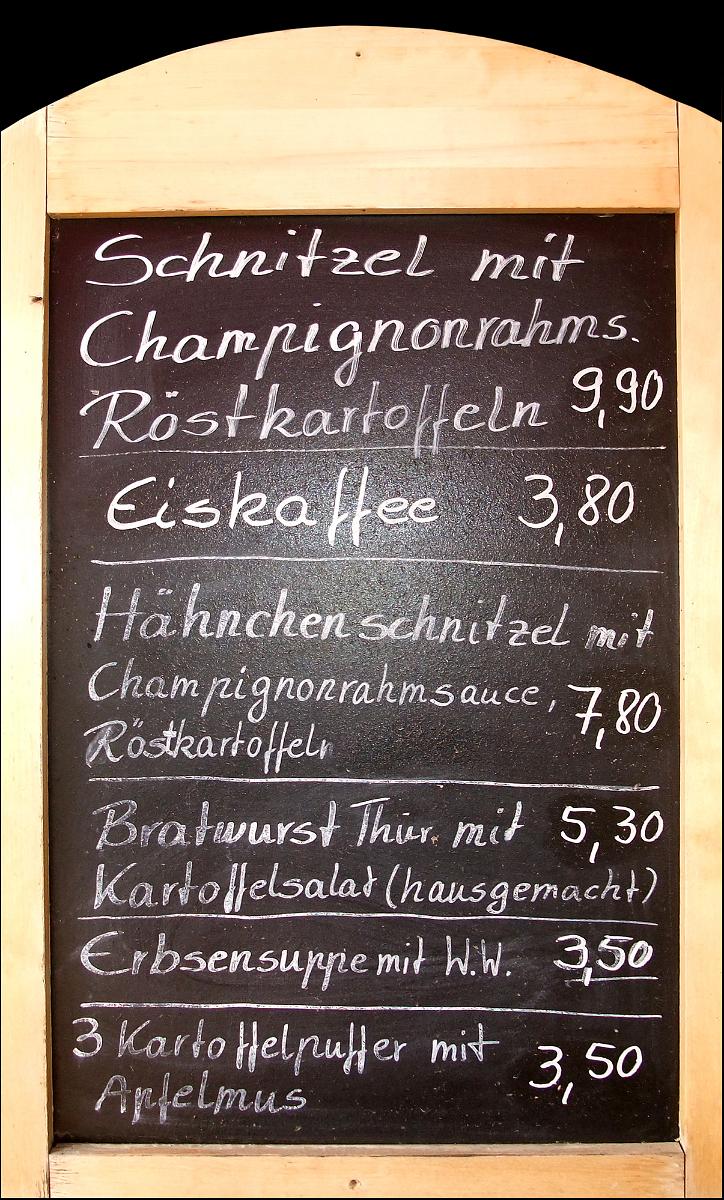 Schnitzel mit
Champignonrahms.
Röstkartoffeln 9,90
Eiskaffee 3,80
Hähnchenschnitzel mit
Champignonrahmsauce, 7,80
Röstkartoffeln
Bratwurst Thür. mit 5,30
Kartoffelsalat (hausgemacht)
Erbsensuppe mit W.W. 3,50
3 Kartoffelpuffer mit 3,50
Apfelmus